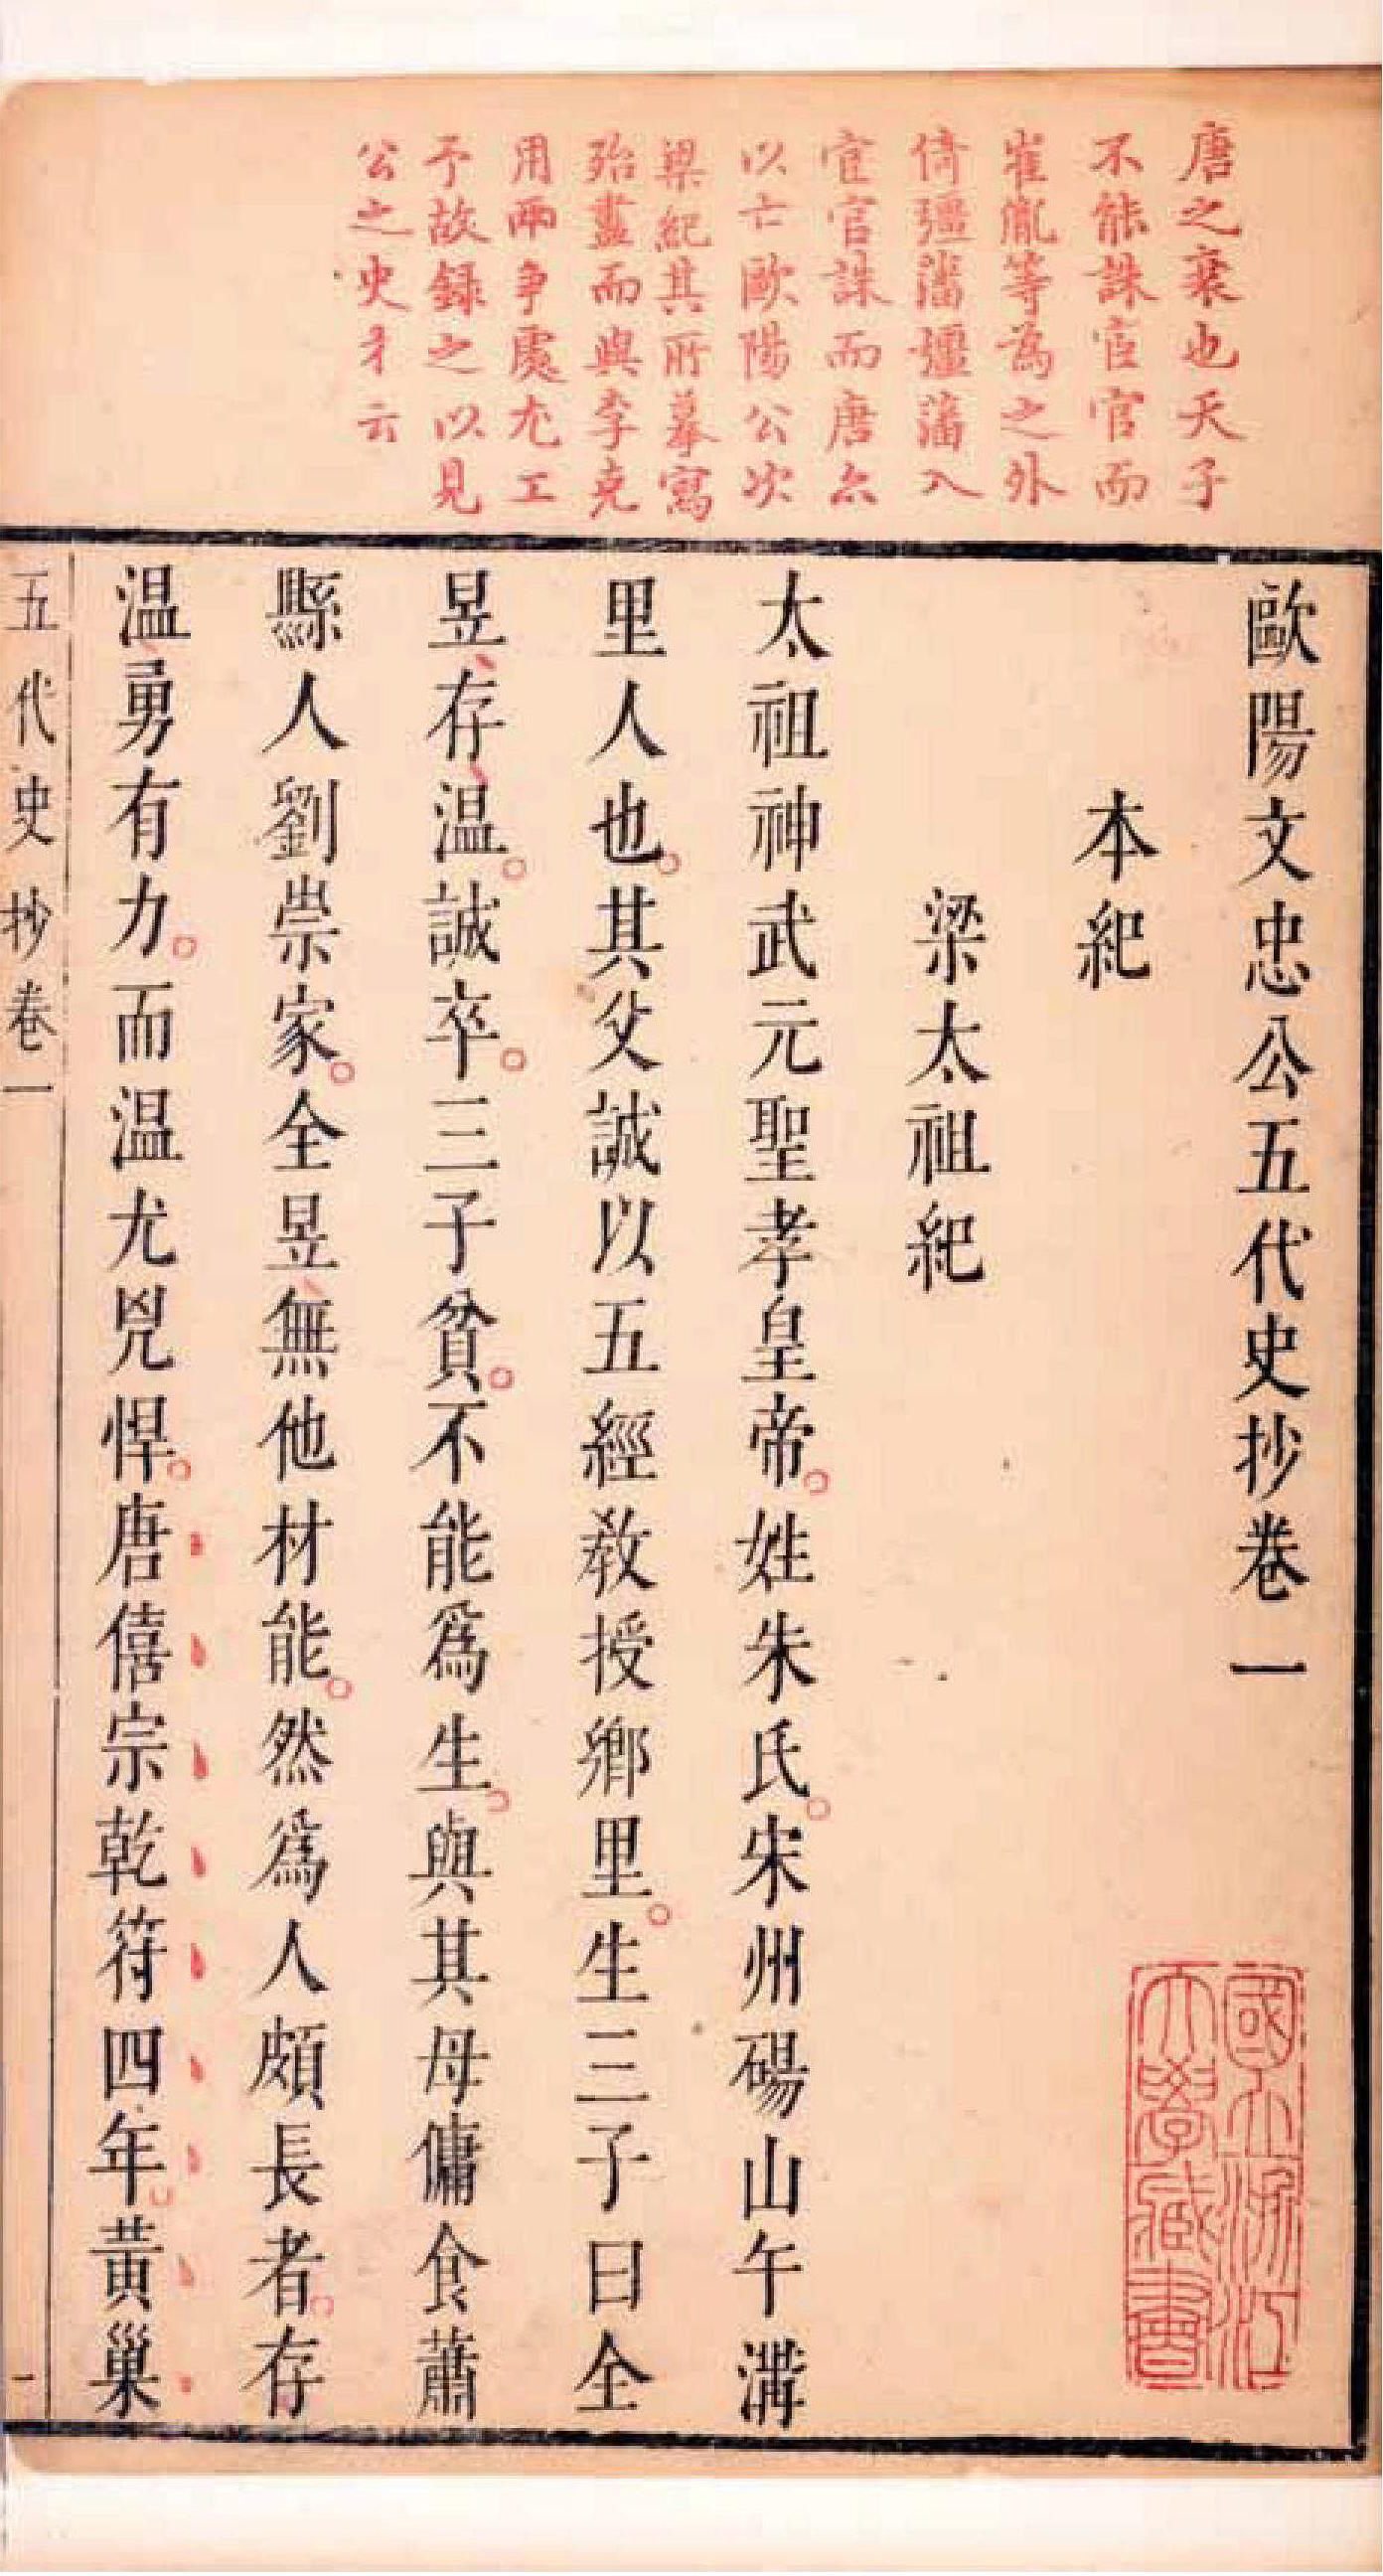 唐之衰也天子
不能誅宦官而
崔胤等為之外
倚彊藩彊藩入
宦官誅而唐亦
以亡歐陽公次
梁紀其所摹寫
殆盡而與李克
用兩爭處尤工
予故録之以見
公之史才云
歐陽文忠公五代史抄卷一
國立浙江
大學藏書
本紀
梁太祖紀
太祖神武元聖孝皇帝。姓朱氏。宋州碭山午溝
里人也。其父誠以五經教授鄉里。生三子曰全
昱、存、温。誠卒。三子貧。不能爲生。與其母傭食蕭
縣人劉崇家。全昱、無他材能。然爲人頗長者。存
温、勇有力。而温尤兇悍。唐僖宗乾符四年。黃巢
五代史抄卷一
一